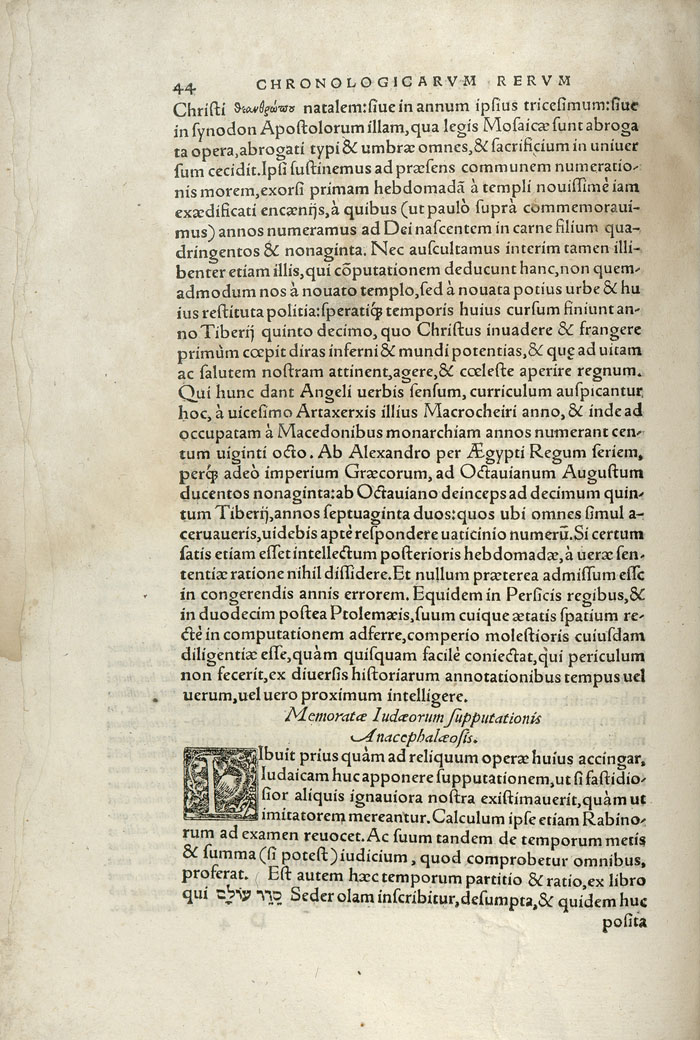 44 CHRONOLOGICARVM RERVM
Christi θεανθρώπου natalem:ſiue in annum ipſius triceſimum:ſiue
in ſynodon Apoſtolorum illam, qua legis Moſaicæ ſunt abroga
ta opera, abrogati typi & umbræ omnes, & ſacrificium in uniuer
ſum cecidit. Ipſi ſuſtinemus ad præſens communem numeratio-
nis morem, exorſi primam hebdomadā à templi nouiſſimè iam
exædificati encænijs, à quibus (ut paulò ſuprà commemoraui-
mus) annos numeramus ad Dei naſcentem in carne filium qua-
dringentos & nonaginta. Nec auſcultamus interim tamen illi-
benter etiam illis, qui cōputationem deducunt hanc, non quem-
admodum nos à nouato templo, ſed à nouata potius urbe & hu
ius reſtituta politia:ſperatiqꝫ temporis huius curſum finiunt an-
no Tiberij quinto decimo, quo Chriſtus inuadere & frangere
primùm cœpit diras inferni & mundi potentias, & quę ad uitam
ac ſalutem noſtram attinent, agere, & cœleſte aperire regnum.
Qui hunc dant Angeli uerbis ſenſum, curriculum auſpicantur
hoc, à uiceſimo Artaxerxis illius Macrocheiri anno, & inde ad
occupatam à Macedonibus monarchiam annos numerant cen-
tum uiginti octo. Ab Alexandro per Ægypti Regum ſeriem,
perqꝫ adeò imperium Græcorum, ad Octauianum Auguſtum
ducentos nonaginta:ab Octauiano deinceps ad decimum quin-
tum Tiberij, annos ſeptuaginta duos:quos ubi omnes ſimul a-
ceruaueris, uidebis aptè reſpondere uaticinio numerū. Si certum
ſatis etiam eſſet intellectum poſterioris hebdomadæ, à ueræ ſen-
tentiæ ratione nihil diſſidere. Et nullum præterea admiſſum eſſe
in congerendis annis errorem. Equidem in Perſicis regibus, &
in duodecim poſtea Ptolemæis, ſuum cuique ætatis ſpatium re-
ctè in computationem adferre, comperio moleſtioris cuiuſdam
diligentiæ eſſe, quàm quiſquam facilè coniectat, qui periculum
non fecerit, ex diuerſis hiſtoriarum annotationibus tempus uel
uerum, uel uero proximum intelligere.
Memoratæ Iudæorum ſupputationis
Anacephalæoſis.
LIbuit prius quàm ad reliquum operæ huius accingar,
Iudaicam huc apponere ſupputationem, ut ſi faſtidio-
ſior aliquis ignauiora noſtra exiſtimauerit, quàm ut
imitatorem mereantur. Calculum ipſe etiam Rabino-
rum ad examen reuocet. Ac ſuum tandem de temporum metis
& ſumma (ſi poteſt) iudicium, quod comprobetur omnibus,
proferat. Eſt autem hæc temporum partitio & ratio, ex libro
qui סֵדֶר עוֹלָם Seder olam inſcribitur, deſumpta, & quidem huc
poſita